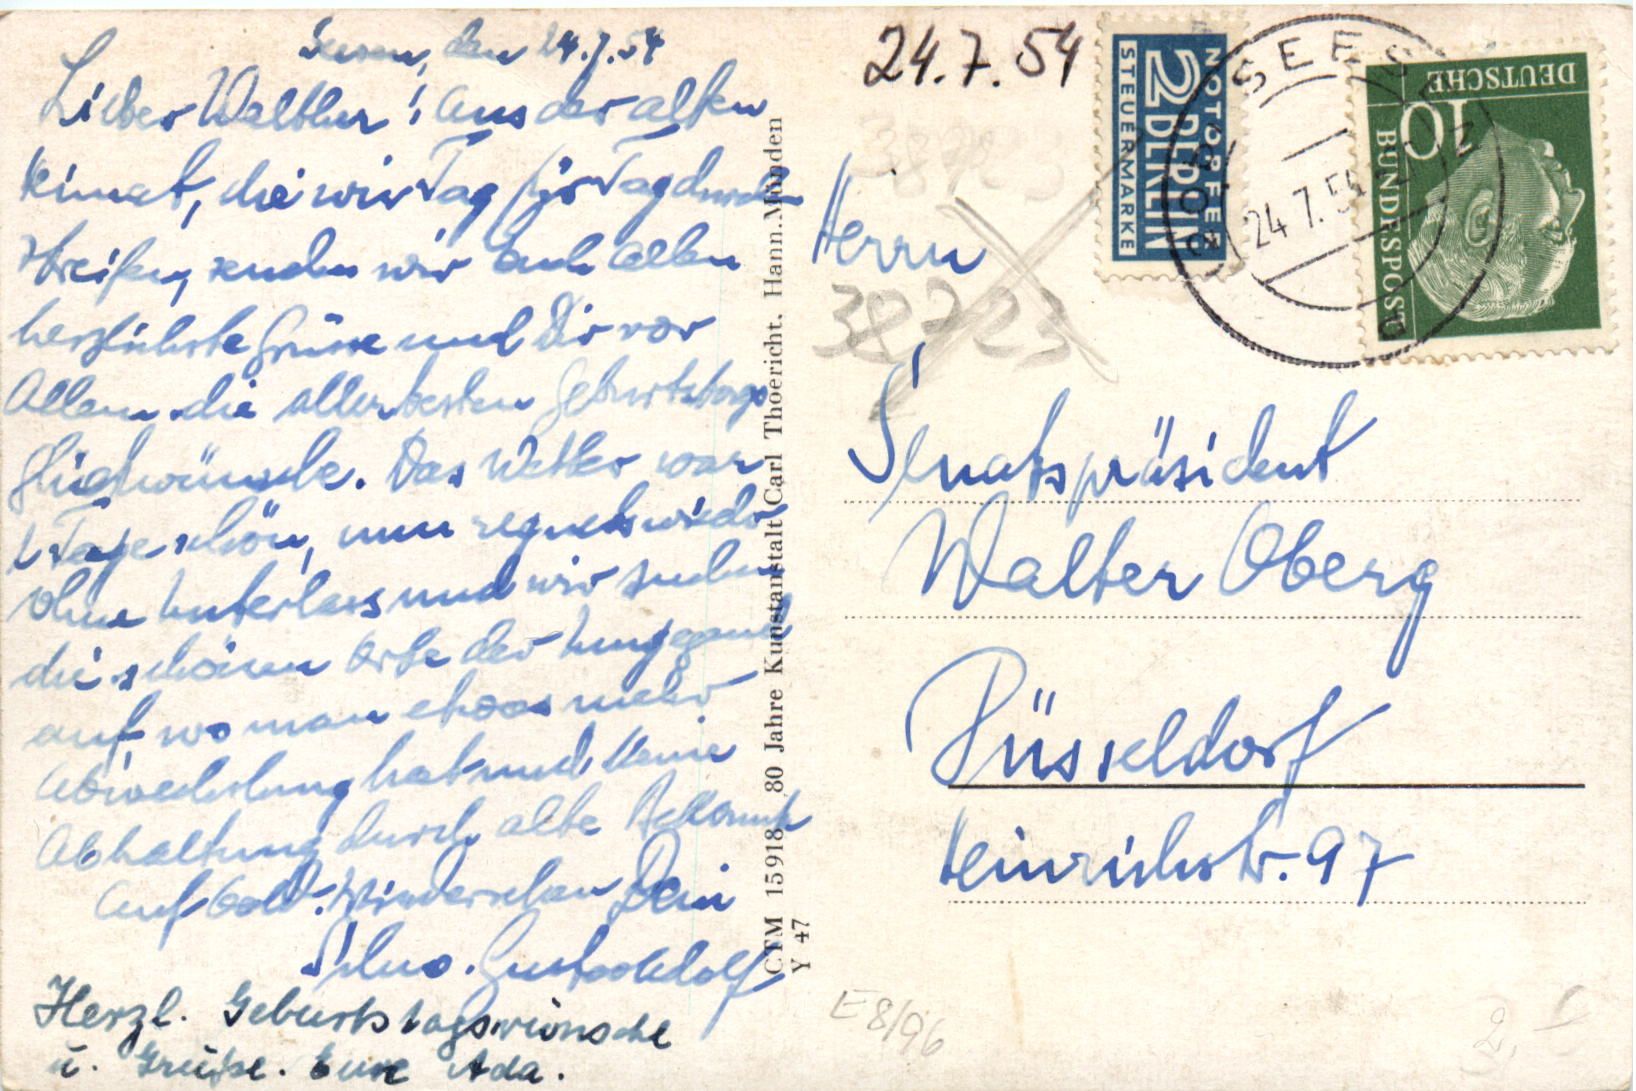 Seesen, den 24.7.54
Lieber Walther! Aus der alten
Heimat, die wir Tag für Tag durch-
streifen, senden wir Euch allen
herzlichste Grüsse und Dir vor
Allem die allerbesten Geburtstags-
glückwünsche. Das Wetter war
Tage schön, nun regnets wieder
ohne Unterlass und wir suchen
die schönen Orte der Umgegend
auf, wo man etwas mehr
Abwechslung hat und keine
Abhaltung durch alte
Auf bald. Wiedersehen Dein
Gustav Adolf
Herzl. Geburtstagswünsche
u. Grüsse. Eure Ada.
CTM 15918 80 Jahre Kunstanstalt Carl Thoericht. Hann.Münden
Y 47
24.7.54
NOTOPFER
2 BERLIN
STEUERMARKE
SEESEN
24.7.54
DEUTSCHE
10
BUNDESPOST
Herrn
38723
Senatspräsident
Walter Oberg
Düsseldorf
Heinrichstr. 97
E8/96